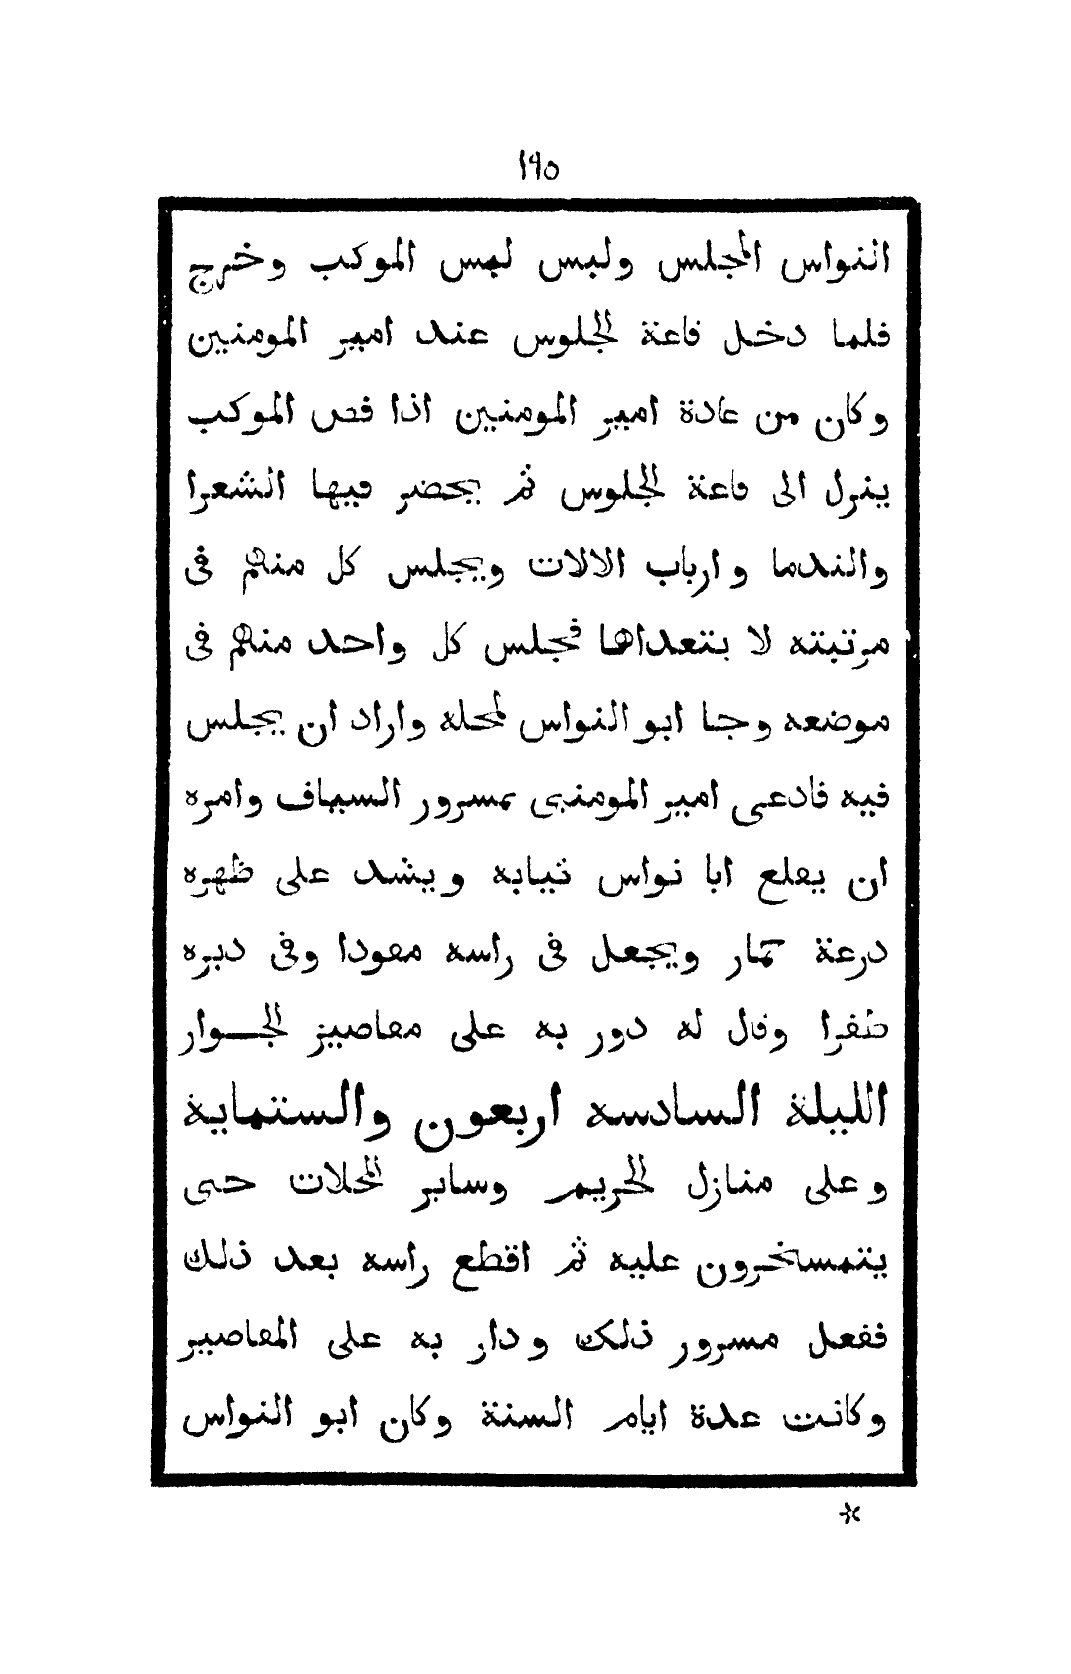 ١٩٥
النواس المجلس ولبس لبس الموكب وخرج
فلما دخل قاعة الجلوس عند امير المومنين
وكان من عادة امير المومنين اذا فض الموكب
ينزل الى قاعة الجلوس ثم يحضر فيها الشعرا
والندما وارباب الالات ويجلس كل منهم فى
مرتبته لا يتعداها فجلس كل واحد منهم فى
موضعه وجا ابو النواس لمحله واراد ان يجلس
فيه فادعى امير المومنين بمسرور السياف وامره
ان يقلع ابا نواس ثيابه ويشد على ظهره
درعة حمار ويجعل فى راسه مقودا وفى دبره
طفرا وقال له دور به على مقاصيز الجـوار
الليلة السادسه اربعون والستماية
وعلى منازل الحريم وساير المحلات حتى
يتمسخرون عليه ثم اقطع راسه بعد ذلك
ففعل مسرور ذلك ودار به على المقاصير
وكانت عدة ايام السنة وكان ابو النواس